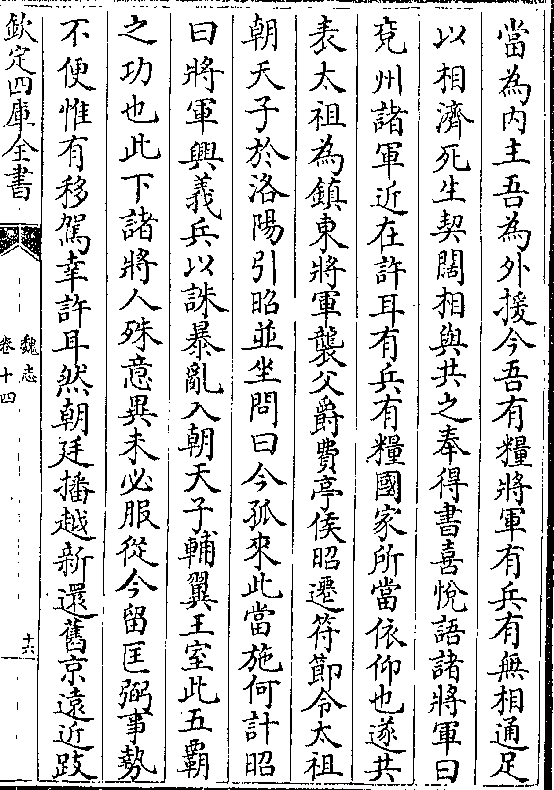 當為内主吾為外援今吾有糧將軍有兵有無相通足
以相濟死生契闊相與共之奉得書喜悅語諸將軍曰
兖州諸軍近在許耳有兵有糧國家所當依仰也遂共
表太祖為鎮東將軍襲父爵費亭侯昭遷符節令太祖
朝天子於洛陽引昭並坐問曰今孤來此當施何計昭
曰將軍興義兵以誅暴亂入朝天子輔翼王室此五霸
之功也此下諸將人殊意異未必服從今留匡弼事勢
不便惟有移駕幸許耳然朝廷播越新還舊京遠近跂
欽定四庫全書
魏志
卷十四
十六